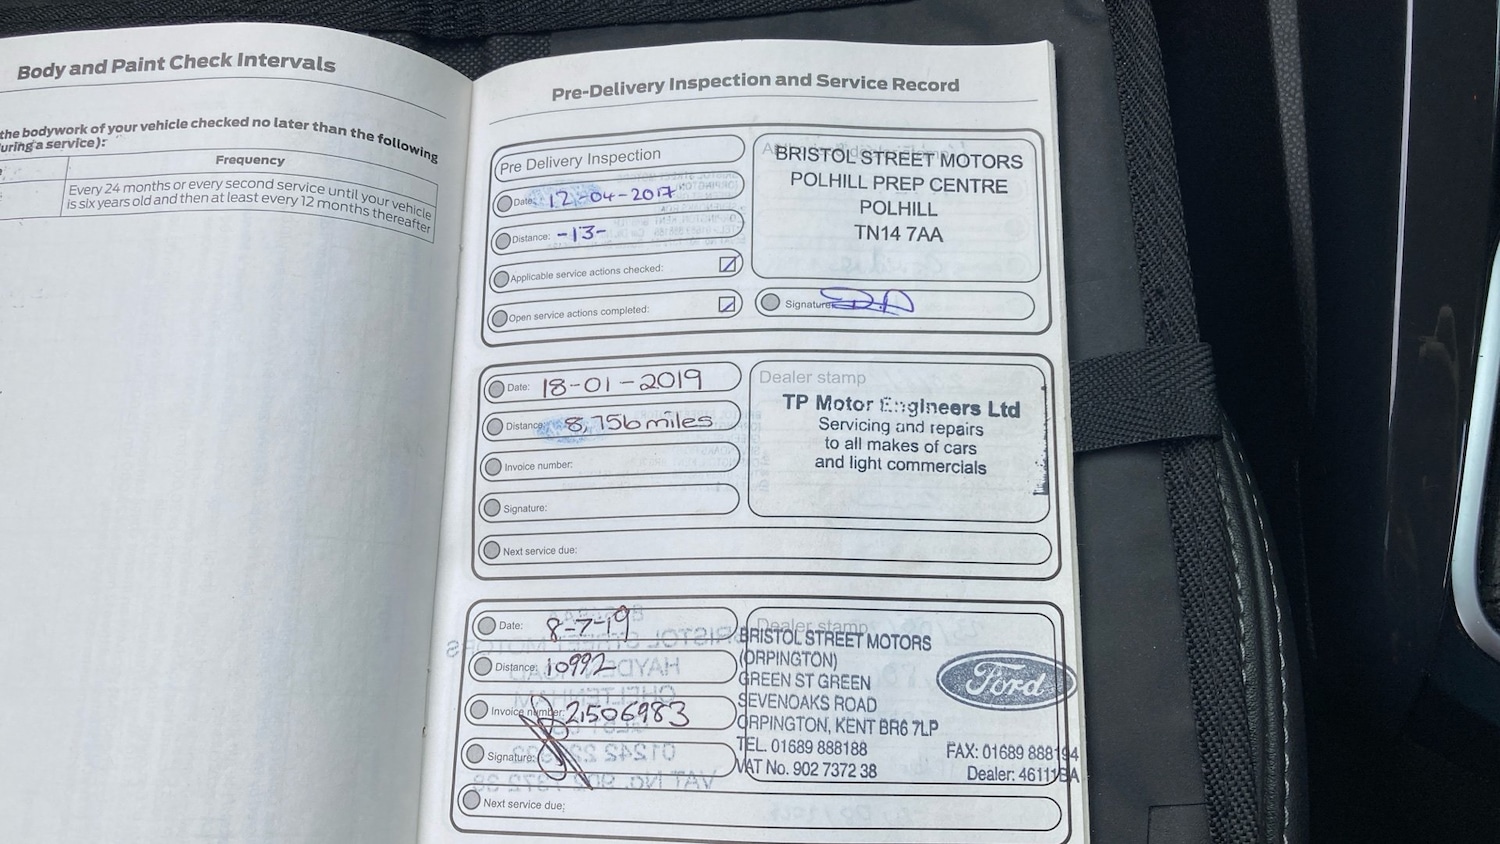 Body and Paint Check Intervals
the bodywork of your vehicle checked no later than the following
uring a service):
Frequency
Every 24 months or every second service until your vehicle
is six years old and then at least every 12 months thereafter
Pre-Delivery Inspection and Service Record
Pre Delivery Inspection
Date: 12-04-2017
Distance: -13-
Applicable service actions checked:
Open service actions completed:
BRISTOL STREET MOTORS
POLHILL PREP CENTRE
POLHILL
TN14 7AA
Signature
Date: 18-01-2019
Distance: 8,756 miles
Invoice number:
Signature:
Next service due:
Dealer stamp
TP Motor Engineers Ltd
Servicing and repairs
to all makes of cars
and light commercials
Date: 8-7-19
Distance: 10992
Invoice number: 21506983
Signature:
Next service due:
Dealer stamp
BRISTOL STREET MOTORS
(ORPINGTON)
GREEN ST GREEN
SEVENOAKS ROAD
ORPINGTON, KENT BR6 7LP
TEL. 01689 888188
VAT No. 902 7372 38
Ford
FAX: 01689 888194
Dealer: 46111BA